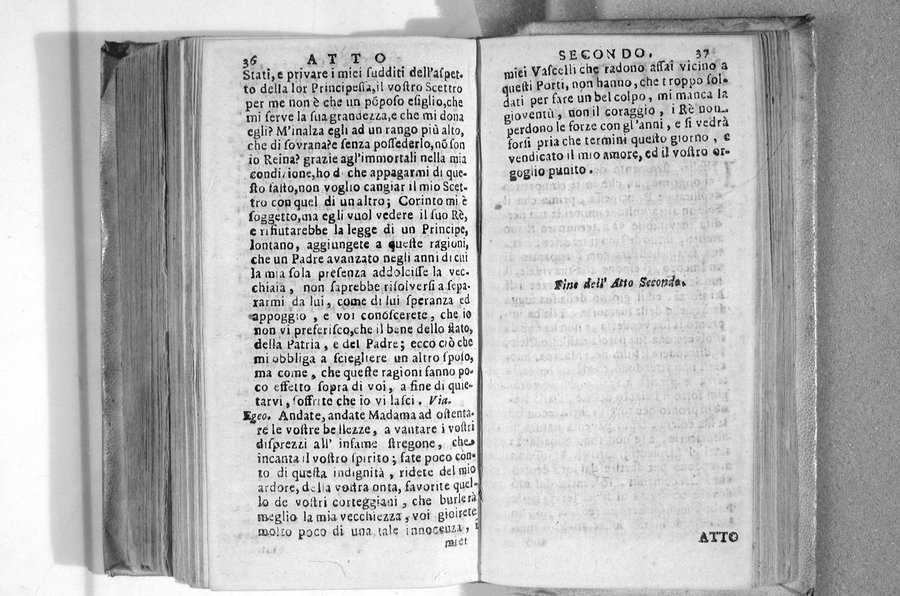 36 ATTO
Stati, e privare i miei sudditi dell'aspet-
to della lor Principessa, il vostro Scettro
per me non è che un põposo esiglio, che
mi serve la sua grandezza, e che mi dona
egli? M'inalza egli ad un rango più alto,
che di sovrana? e senza possederlo, nõ son
io Reina? grazie agl'immortali nella mia
condizione, ho d che appagarmi di que-
sto fasto, non voglio cangiar il mio Scet-
tro con quel di un altro; Corinto mi è
soggetto, ma egli vuol vedere il suo Rè,
e rifiutarebbe la legge di un Principe,
lontano, aggiungete a queste ragioni,
che un Padre avanzato negli anni di cui
la mia sola presenza addolcisse la vec-
chiaia, non saprebbe risolversi a sepa-
rarmi da lui, come di lui speranza ed
appoggio, e voi conoscerete, che io
non vi preferisco, che il bene dello stato,
della Patria, e del Padre; ecco ciò che
mi obbliga a sciegliere un altro sposo,
ma come, che queste ragioni fanno po-
co effetto sopra di voi, a fine di quie-
tarvi, soffrite che io vi lasci. Via.
Egeo. Andate, andate Madama ad ostenta-
re le vostre bellezze, a vantare i vostri
disprezzi all' infame stregone, che
incanta il vostro spirito; fate poco con-
to di questa indignità, ridete del mio
ardore, della vostra onta, favorite quel-
lo de vostri corteggiani, che burlerà
meglio la mia vecchiezza, voi gioirete
molto poco di una tale innocenza, i
miei
SECONDO. 37
miei Vascelli che radono assai vicino a
questi Porti, non hanno, che troppo sol-
dati per fare un bel colpo, mi manca la
gioventù, non il coraggio, i Rè non
perdono le forze con gl'anni, e si vedrà
forsi pria che termini questo giorno, e
vendicato il mio amore, ed il vostro or-
goglio punito.
Fine dell' Atto Secondo.
ATTO